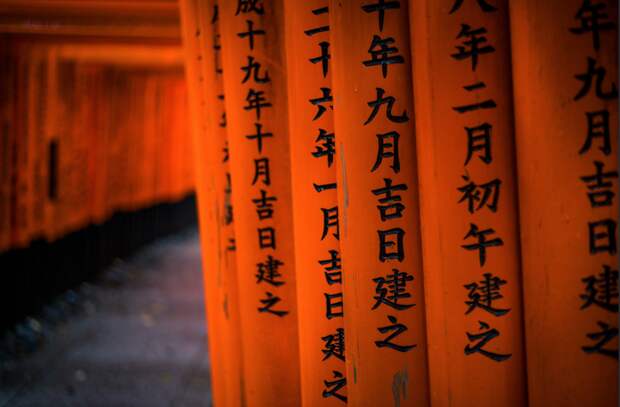 年九月吉日建之
八年二月初午建之
十年九月吉日建之
二十六年一月吉日建之
成十九年十月吉日建之